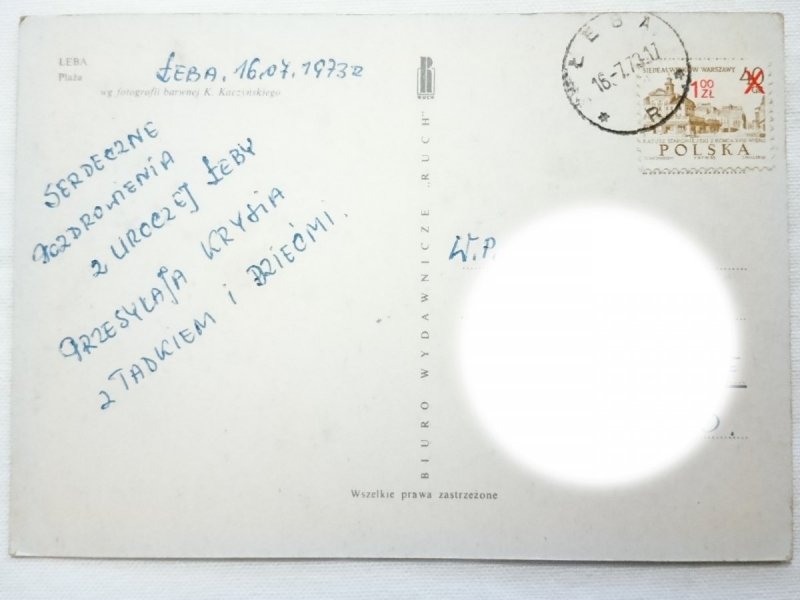 ŁEBA
Plaża
wg fotografii barwnej K. Kaczyńskiego
ŁEBA. 16.07.1973r
RUCH
SERDECZNE
POZDROWIENIA
Z UROCZEJ ŁEBY
PRZESYŁAJĄ KRYSIA
Z TADKIEM I DZIEĆMI.
BIURO WYDAWNICZE „RUCH"
Wszelkie prawa zastrzeżone
ŁEBA
16.-7.73.-17
* R *
SIEDEM WIEKÓW WARSZAWY
40
1 00
ZŁ
POLSKA
W.P.